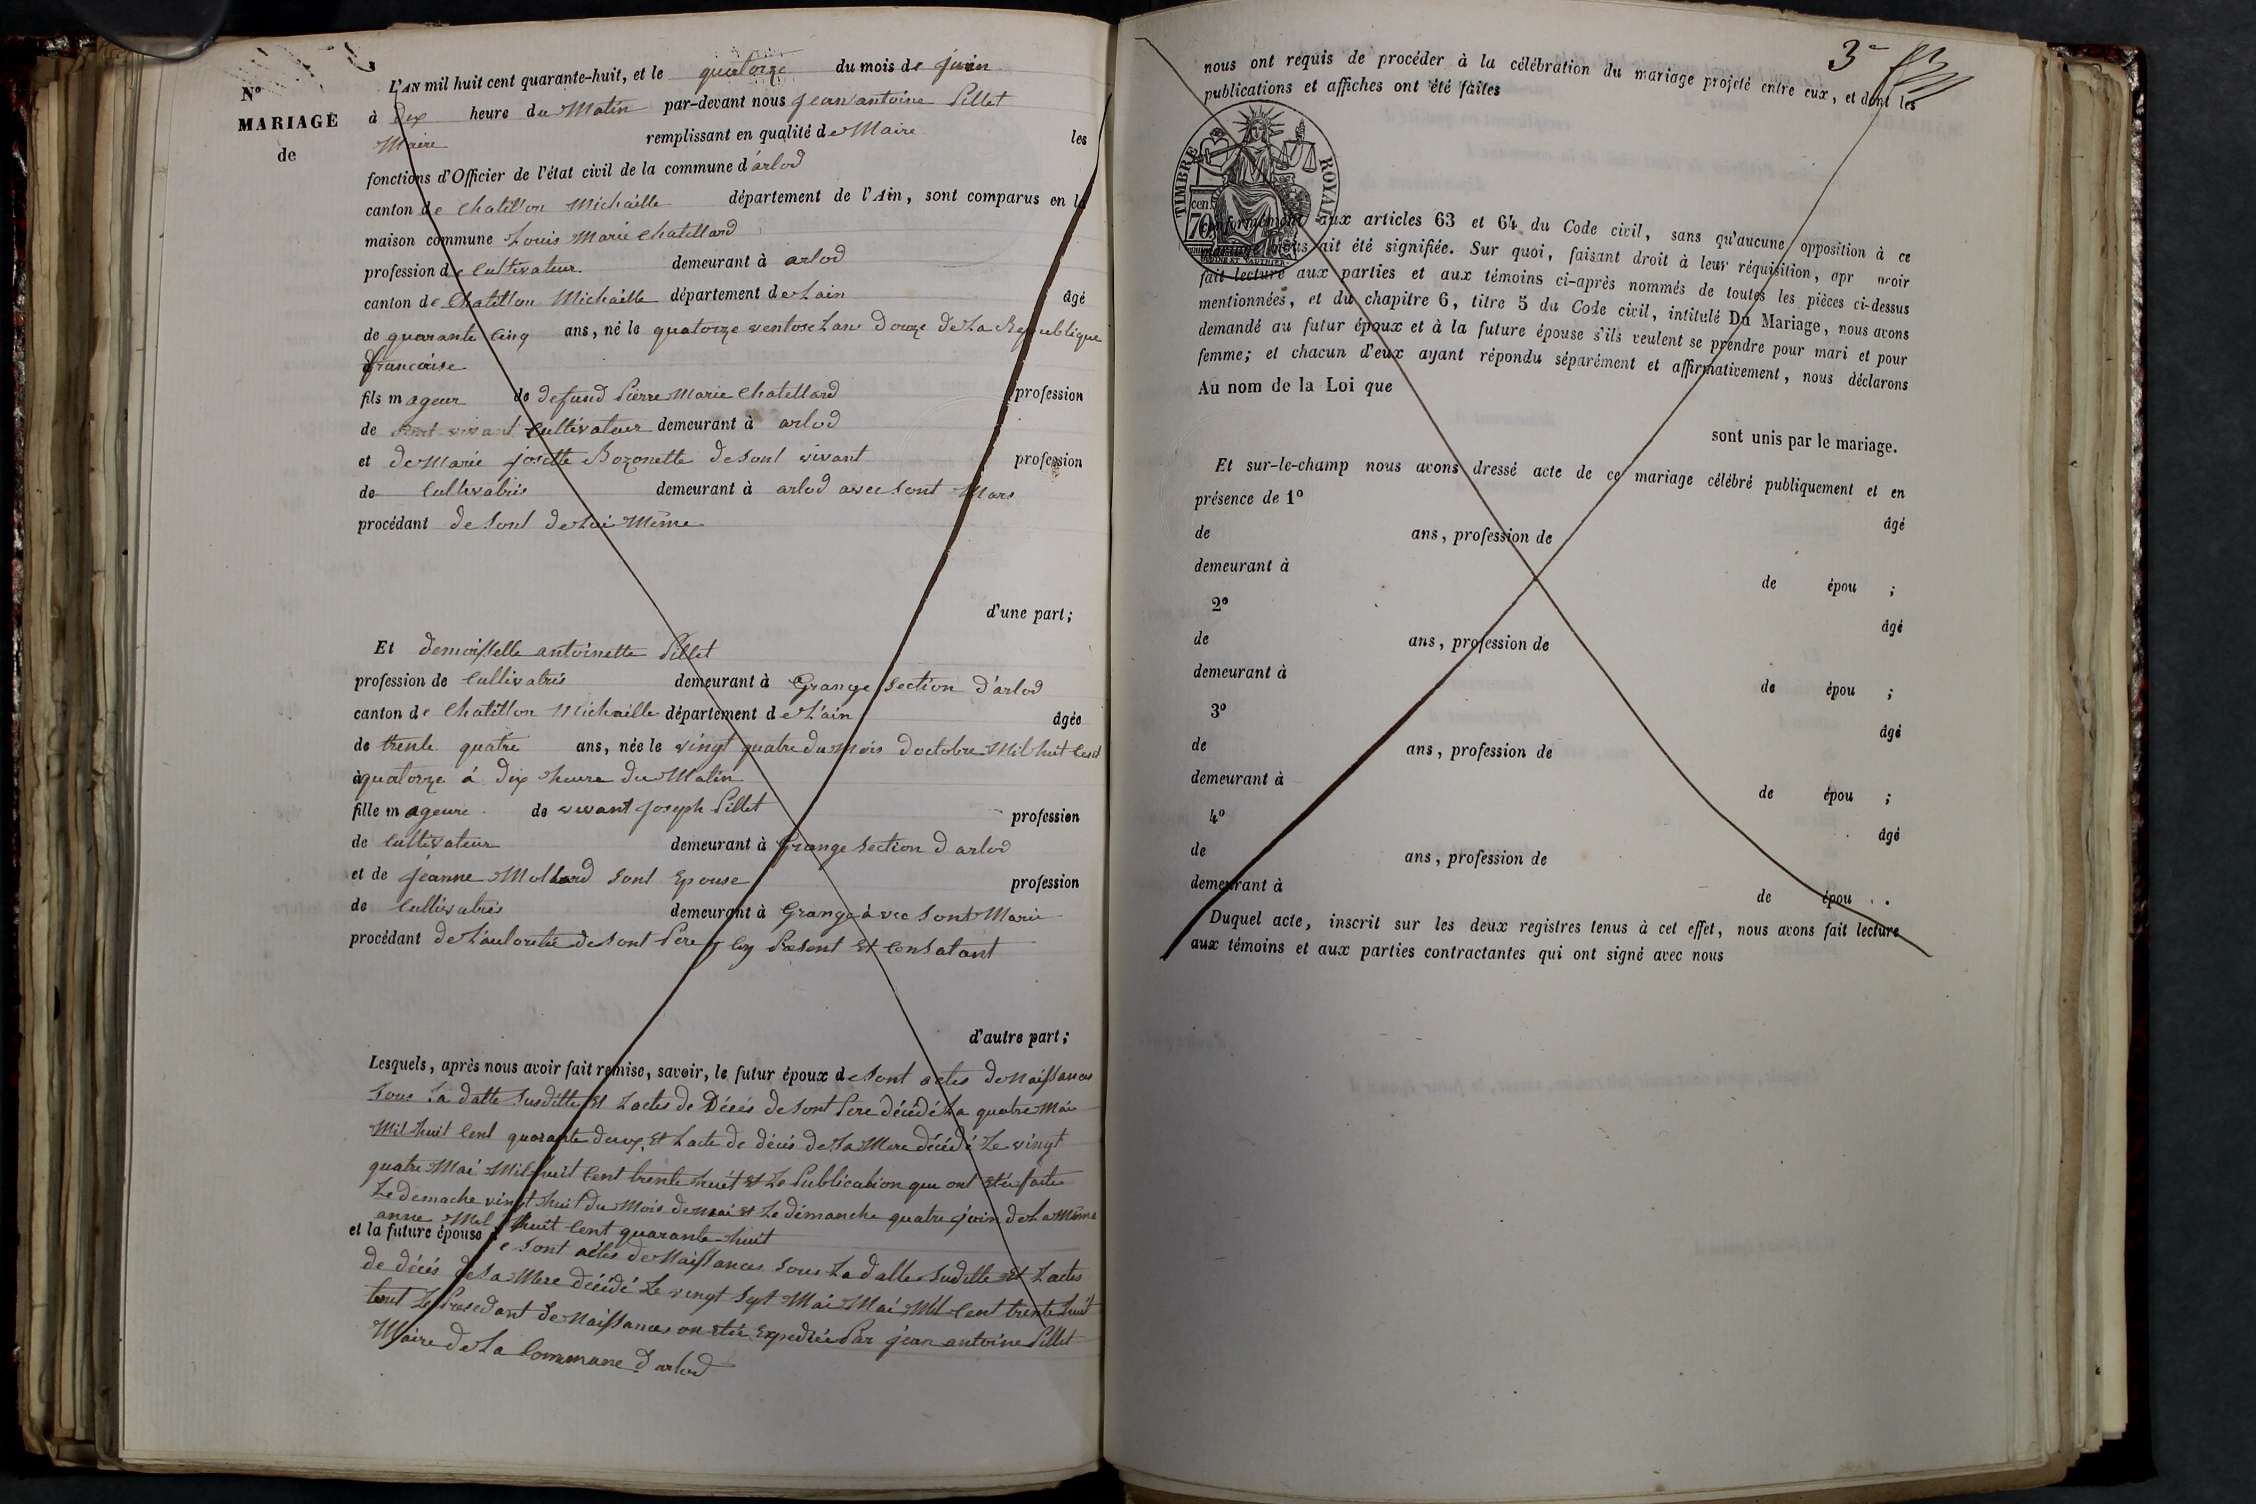 N°
MARIAGE
de
L'AN mil huit cent quarante-huit, et le quatorze du mois de juin
à dix heure du Matin par-devant nous jean antoine Pillet
Maire remplissant en qualité de Maire les
fonctions d'Officier de l'état civil de la commune d'arlod
canton de Chatillon Michaille département de l'Ain, sont comparus en la
maison commune Louis Marie Chatellard
profession de Cultivateur demeurant à arlod
canton de Chatillon Michaille département de Lain âgé
de quarante Cinq ans, né le quatorze ventose Lan Douze de La Republique
francaise
fils mageur de defund Pierre Marie Chatellard profession
de sont vivant Cultivateur demeurant à arlod
et de Marie josette Bozonette de sont vivant profession
de Cultivatris demeurant à arlod avec sont Mars
procédant de sont de Lui Même
d'une part;
Et demoisselle antoinette Pillet
profession de Cultivatris demeurant à Grange section d'arlod
canton de Chatillon Michaille département de L'ain âgée
de trente quatre ans, née le vingt quatre du Mois d'octobre Mil huit Cent
quatorze á dix heure du Matin
fille mageure de vivant joseph Pillet profession
de Cultivateur demeurant à Grange section d arlod
et de jéanne Mollard sont Epouse profession
de Cultivatris demeurant à Grange avec sont Marie
procédant de L'autoritée de sont Pere y Cy Present Et Consatant
d'autre part;
Lesquels, après nous avoir fait remise, savoir, le futur époux de sont actes de Naissances
sous La datte susditte Et L'actes de Décés de sont Pere décédé La quatre Mai
Mil huit Cent quarante deux, Et Lacte de décés de sa Mere décédé Le vingt
quatre Mai Mil huit Cent trente huit Et Le Publication que ont étée faite
Le demache vingt huit du Mois de mai et Le démanche quatre join de La Même
anne Mil huit Cent quarante huit
et la future épouse de sont actes de Naissances sous La datte suditte Et Lactes
de décés de sa Mere décédé Le vingt Sept Mai Mai Mil Cent trente huit
tout Le Presedant de Naissances on étée Expediée Par jean antoine Pillet
Maire de La Commune d'arlod
3e
nous ont requis de procéder à la célébration du mariage projeté entre eux, et dont les
publications et affiches ont été faites
TIMBRE ROYAL
70 cen.
conformément aux articles 63 et 64 du Code civil, sans qu'aucune opposition à ce
mariage nous ait été signifiée. Sur quoi, faisant droit à leur réquisition, apr avoir
fait lecture aux parties et aux témoins ci-après nommés de toutes les pièces ci-dessus
mentionnées, et du chapitre 6, titre 5 du Code civil, intitulé Du Mariage, nous avons
demandé au futur époux et à la future épouse s'ils veulent se prendre pour mari et pour
femme; et chacun d'eux ayant répondu séparément et affirmativement, nous déclarons
Au nom de la Loi que
sont unis par le mariage.
Et sur-le-champ nous avons dressé acte de ce mariage célébré publiquement et en
présence de 1°
âgé
de ans, profession de
demeurant à
de épou ;
2° âgé
de ans, profession de
demeurant à
de épou ;
3° âgé
de ans, profession de
demeurant à
de épou ;
4° âgé
de ans, profession de
demeurant à
de épou .
Duquel acte, inscrit sur les deux registres tenus à cet effet, nous avons fait lecture
aux témoins et aux parties contractantes qui ont signé avec nous